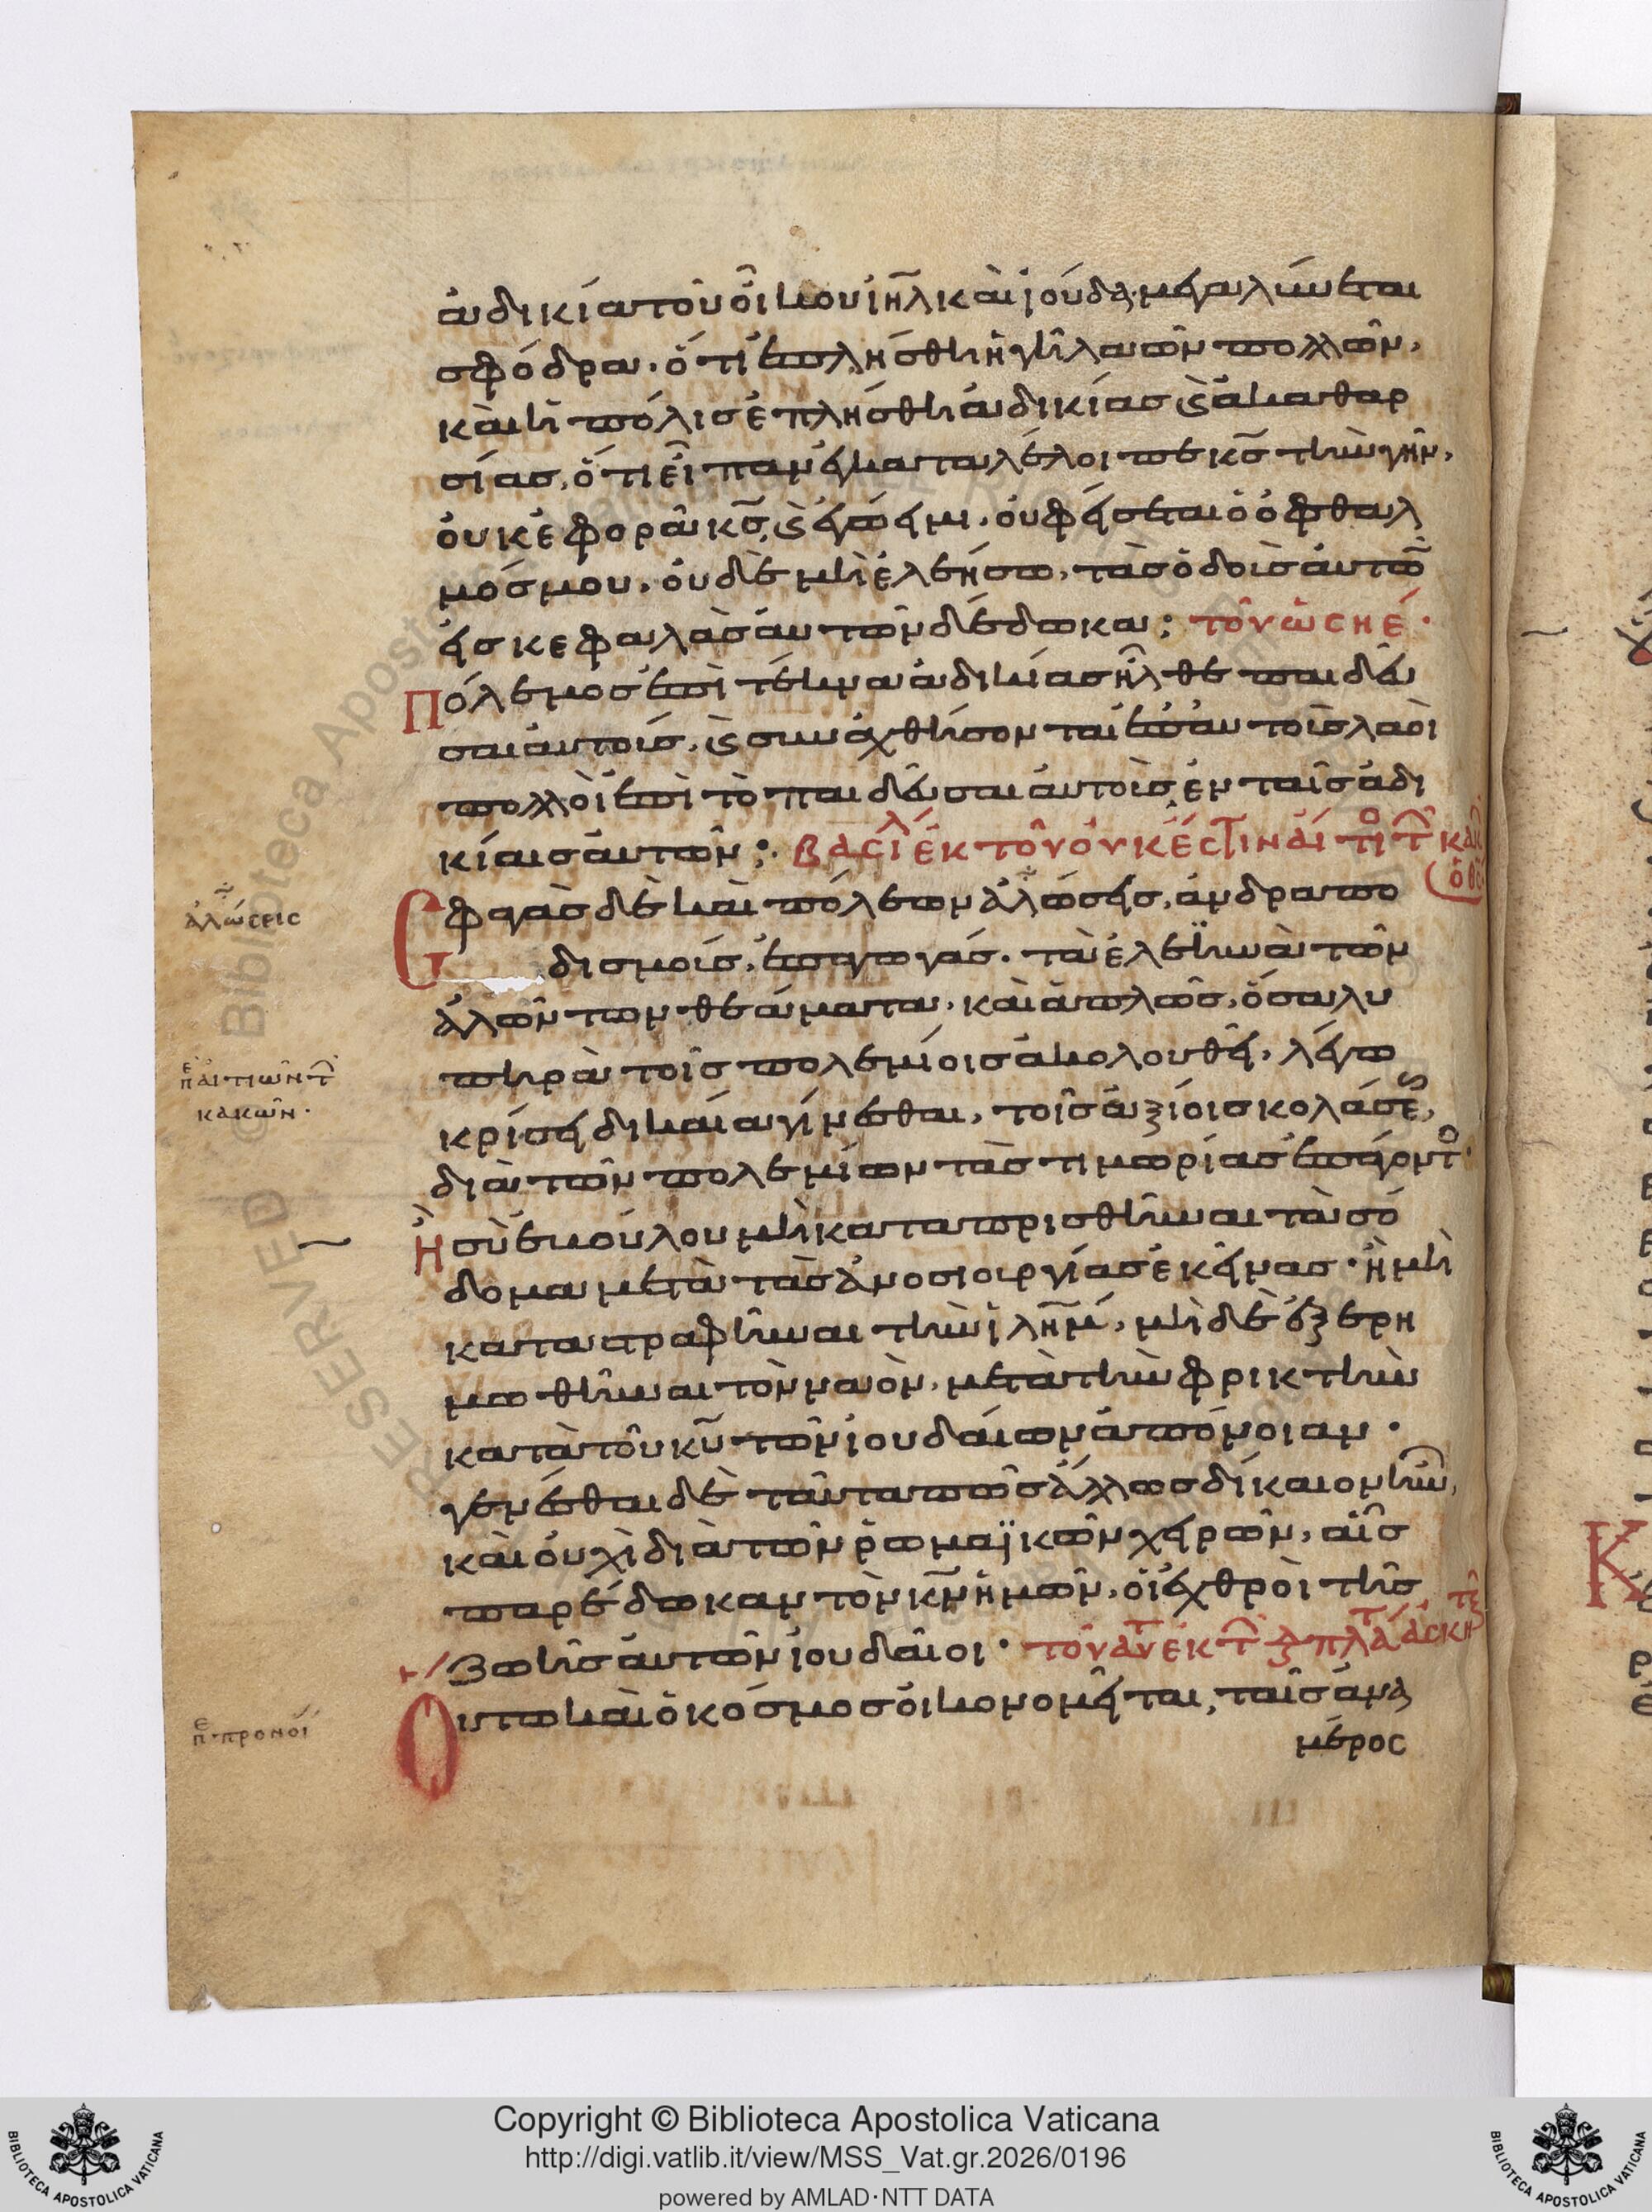 ἀδικία τοῦ οἴκου ἰη̅λ καὶ ἰούδα· μεγαλύνεται
σφόδρα· ὅτι ἐπλήσθη ἡ γῆ λαῶν πολλῶν,
καὶ ἡ πόλις ἐπλήσθη ἀδικίας ϗ ἀκαθαρ
σίας, ὅτι εἶπαν ἐγκαταλέλοιπε κ̅ς τὴν γῆν,
οὐκ ἐφορᾶ κ̅ς, ϗ ἐγώ εἰμι. οὐ φείσεται ὁ ὀφθαλ
μός μου. οὐδὲ μὴ ἐλεήσω, τὰς ὁδοὺς αὐτῶ̅
εἰς κεφαλὰς αὐτῶν δέδωκα: τοῦ ὠσηέ·
Πόλεμος ἐπὶ τέκνα ἀδικίας ἦλθε παιδεῦ
σαι αὐτούς, ϗ συναχθήσονται ἐπ' αὐτοὺς λαοὶ
πολλοὶ ἐπὶ τὸ παιδεῦσαι αὐτοὺς, ἐν ταῖς ἀδι
κίαις αὐτῶν:· βασιλ ἐκ τοῦ οὐκ ἐστιν αἴτιο τ κακ
ὁ θ̅ς
Σφαγὰς δὲ καὶ πόλεων ἁλώσεις, ἀνδραπο
δισμούς, ἀπαγωγάς. τὰ ἐλεεινὰ τῶν
ἁλόντων θεάματα, καὶ ἁπλῶς, ὅσα λυ
πηρὰ τοῖς πολεμίοις ἀκολουθεῖ, λέγω
κρίσει δικαία γίνεσθαι, τοῖς ἀξίοις κολάσεως,
διὰ τῶν πολεμίων τὰς τιμωρίας ἐπάγοντο·
Ἢ σὺ ἐκούλου μὴ καταπρισθῆναι τὰ σό
δομα μετὰ τὰς ἀνοσιουργίας ἐκείνας· ἢ μὴ
καταστραφῆναι τὴν ἰλη̅μ, μὴ δὲ ἐξερη
μωθῆναι τὸν ναὸν, μετὰ τὴν φρικτὴν
κατὰ τοῦ κ̅υ τῶν ἰουδαίων ἀπόνοιαν·
γενέσθαι δὲ ταῦτα πῶς ἄλλως δίκαιον ἦν,
καὶ οὐχὶ διὰ τῶν ῥωμαϊκῶν χειρῶν, αἷς
παρέδωκαν τὸν κ̅ν ἡμῶν, οἱ ἐχθροὶ τῆς
ζωῆς αὐτῶν ἰουδαῖοι·
Οὕτω καὶ ὁ κόσμος οἰκονομεῖται, ταῖς ἀνα
μέρος
ἁλώσεις
αἰτιῶν τ
κακῶν·
προνοί
Copyright © Biblioteca Apostolica Vaticana
http://digi.vatlib.it/view/MSS_Vat.gr.2026/0196
powered by AMLAD·NTT DATA
BIBLIOTECA APOSTOLICA VATICANA
BIBLIOTECA APOSTOLICA VATICANA